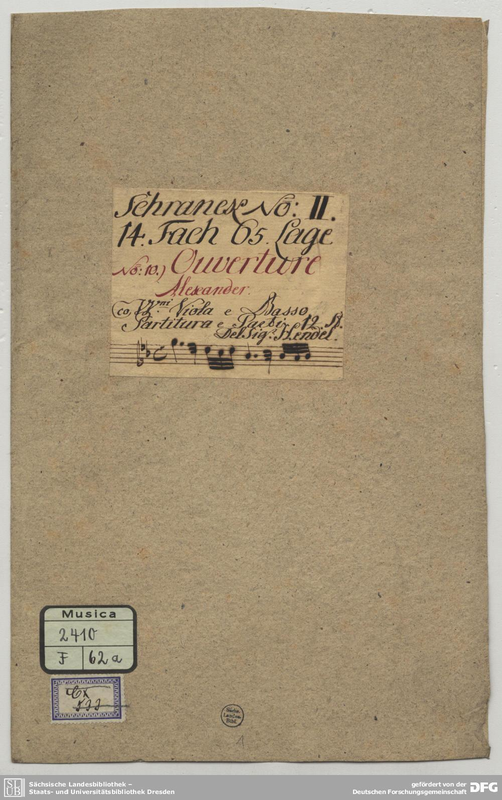 Schranck No: II.
14. Fach 65. Lage
No: 10.) Ouverture
Alexander.
co VVni Viola e Basso
Partitura e Parti 12. St.
Del Sigr. Hendel.
Musica
2410
F 62a
Cx
Sächs.
Landes-
Bibl.
1
SLUB
Sächsische Landesbibliothek –
Staats- und Universitätsbibliothek Dresden
gefördert von der
Deutschen Forschungsgemeinschaft
DFG